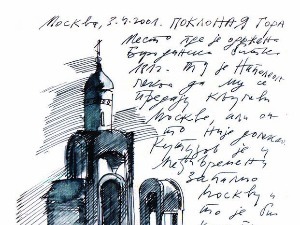 Москва, 3.4.2001. ПОКЛОНАЯ ГОРА
Место где је одржана
Бородинска битка
1812. Ту је Наполеон
чекао да му се
предају кључеви
Москве, али он
то није дочекао
Кутузов је у
међувремену
запалио
Москву и
то је би